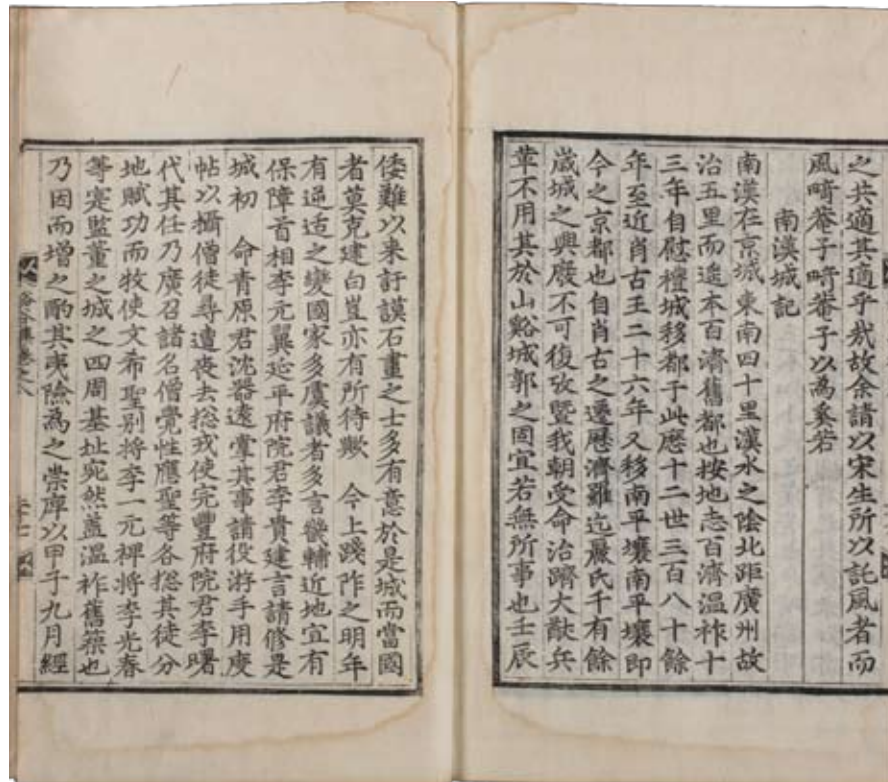 之共適其適乎哉故余請以宋生所以託風者而
風畸菴子畸菴子以為奚若
南漢城記
南漢在京城東南四十里漢水之陰北距廣州故
治五里而遥本百濟舊都也按地志百濟温祚十
三年自慰禮城移都于此歷十二世三百八十餘
年至近肖古王二十六年又移南平壤南平壤即
今之京都也自肖古之遷歷濟羅迄麗氏千有餘
歲城之興廢不可復攷暨我朝受命治躋大猷兵
革不用其於山谿城郭之固宜若無所事也壬辰
倭難以来訏謨石畫之士多有意於是城而當國
者莫克建白豈亦有所待歟 今上踐阼之明年
有逆适之變國家多虞議者多言畿輔近地宜有
保障首相李元翼延平府院君李貴建言請修是
城初 命青原君沈器遠掌其事請役游手用度
帖以攝僧徒尋遭喪去摠戎使完豐府院君李曙
代其任乃廣召諸名僧覺性應聖等各摠其徒分
地賦功而牧使文希聖别將李一元裨將李光春
等寔監董之城之四周基址宛然蓋温祚舊築也
乃因而增之酌其夷險為之崇庳以甲子九月經
谿谷集卷之八